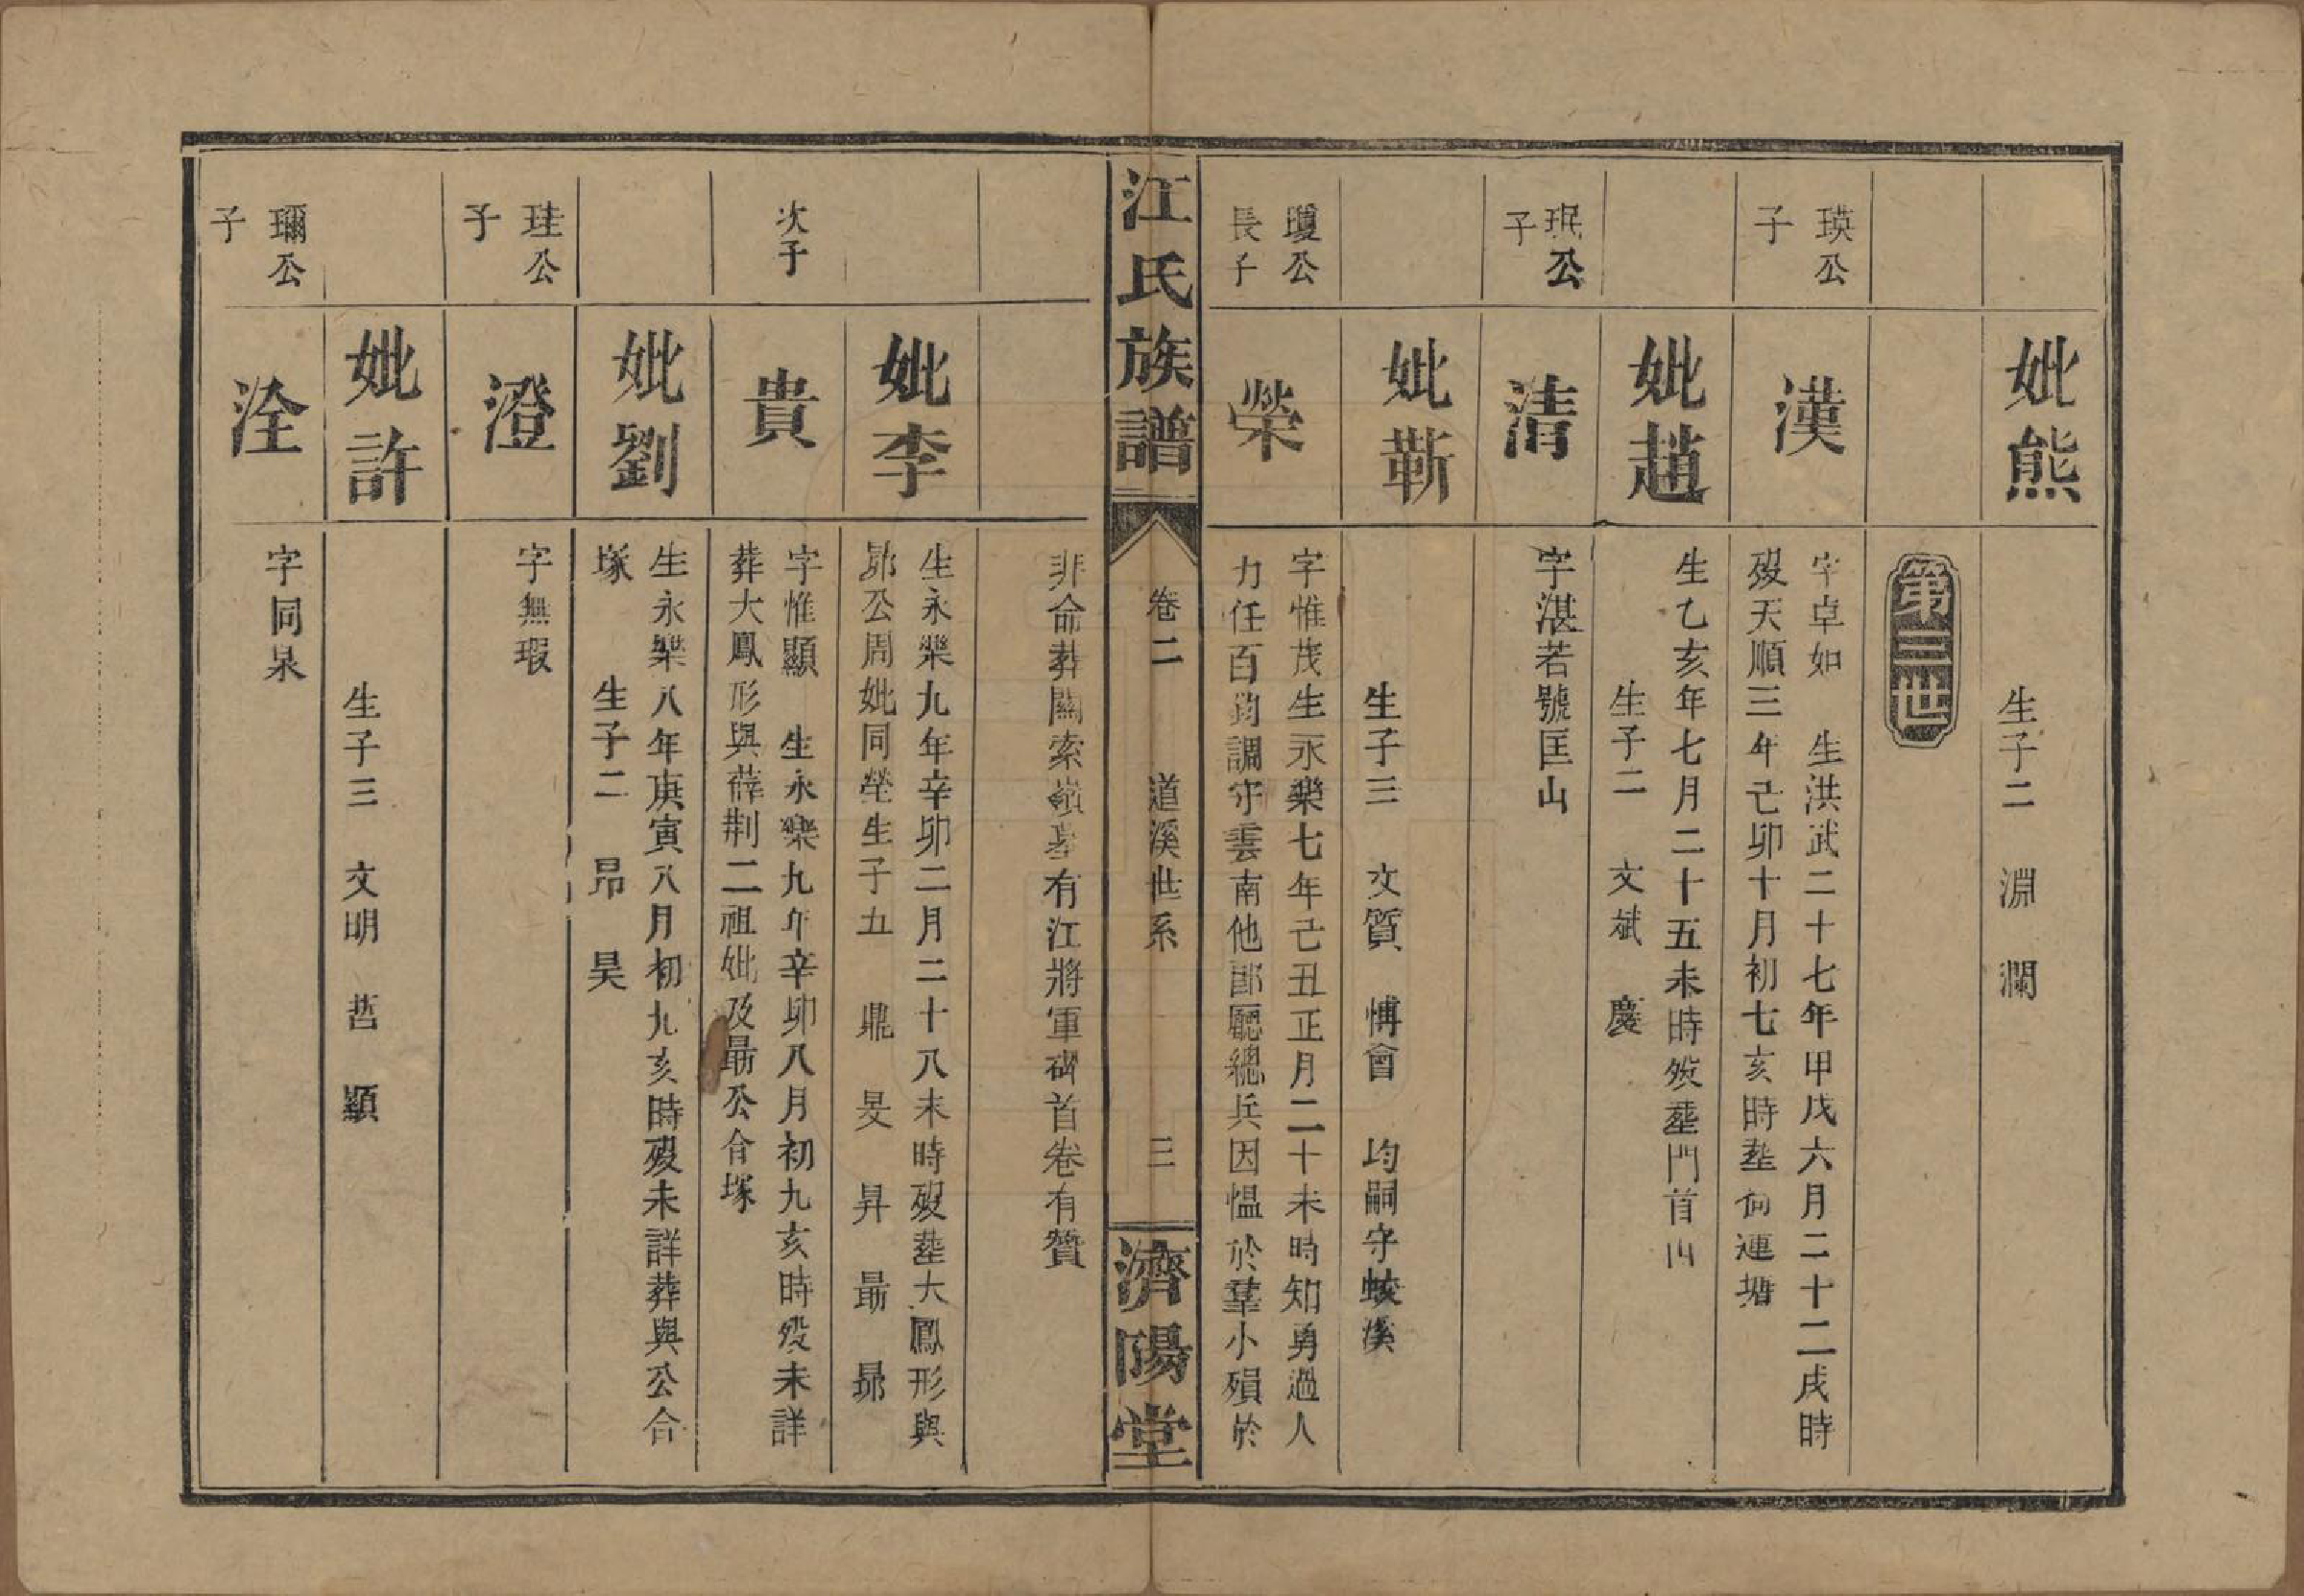 妣熊
生子二 淵 瀾
第三世
瑛公
子
漢
字卓如 生洪武二十七年甲戌六月二十二戌時
歿天順三年己卯十月初七亥時塟何連塘
妣趙
生乙亥年七月二十五未時歿塟門首山
生子二 文斌 慶
珉公
子
清
字湛若號匡山
妣蘄
生子三 文質 博會 均嗣守蛟溪
瓊公
長子
榮
字惟茂生永樂七年己丑正月二十未時知勇過人
力任百鈞調守雲南他郎廳總兵因慍於羣小殞於
江氏族譜
卷二
道溪世系
三
濟陽堂
非命葬關索嶺墓有江將軍碑首卷有贊
妣李
生永樂九年辛卯二月二十八未時歿塟大鳳形與
昴公周妣同塋生子五 鼎 旻 昇 最 昴
次子
貴
字惟顯 生永樂九年辛卯八月初九亥時歿未詳
葬大鳳形與薛荆二祖妣及最公合塚
妣劉
生永樂八年庚寅八月初九亥時歿未詳葬與公合
塚 生子二 昂 昊
珪公
子
澄
字無瑕
妣許
生子三 文明 哲 顯
璊公
子
洤
字同泉